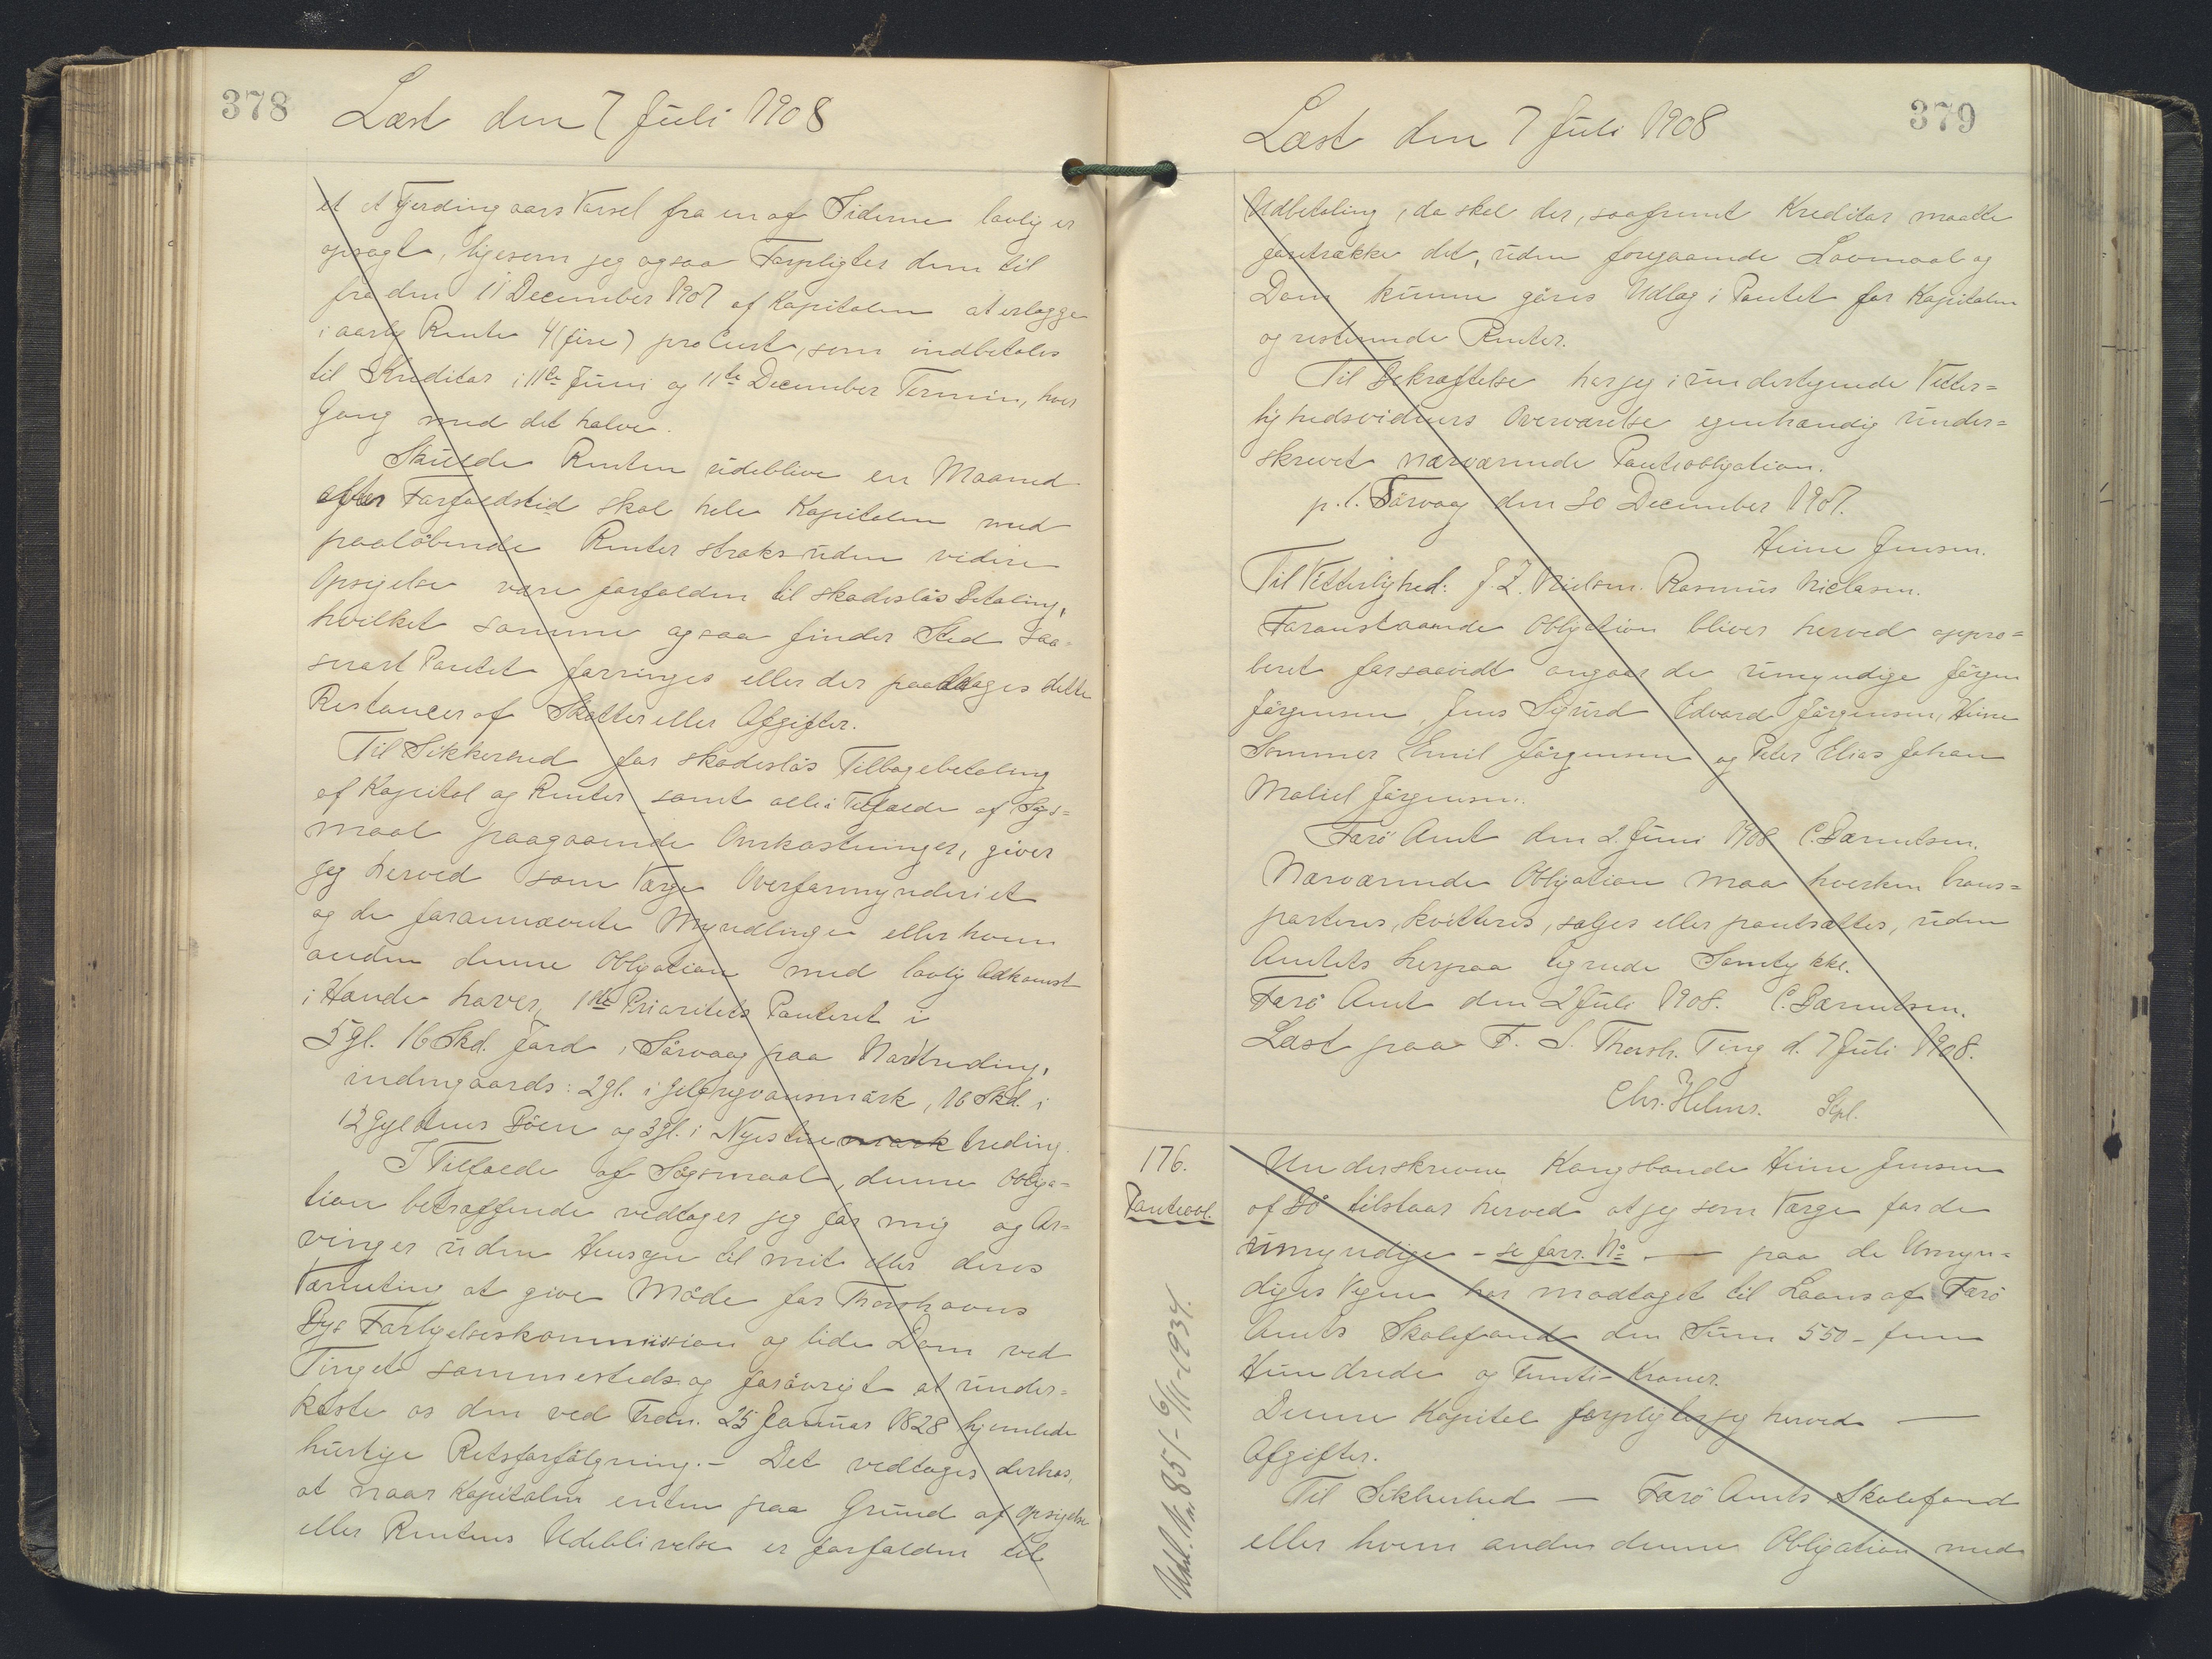 378
Læst den 7 Juli 1908
et et Fjerdingaars Varsel fra en af Siderne lovlig er
opsagt, ligesom jeg ogsaa Forpligter dem til
fra den 11 December 1907 af Kapitalen at erlægge
i aarlig Rente 4 (fire) procent, som indbetales
til Kreditor i 11te Juni og 11te December Termin, hver
Gang med det halve.
Skulde Renten udeblive en Maaned
efter Forfaldstid skal hele Kapitalen med
paaløbende Renter straks uden videre
Opsigelse være forfalden til skadesløs Betaling,
hvilket samme ogsaa finder Sted saa-
snart Pantet forringes eller der paadrages dette
Restancer af Skatter eller Afgifter.
Til Sikkerhed for skadesløs Tilbagebetaling
af Kapital og Renter samt alle i Tilfælde af Søgs=
maal paagaaende Omkostninger, giver
jeg herved som Værge Overformynderiet
og de forannævnte Myndlinge eller hvem
anden denne Obligation med lovlig Adkomst
i Hænde haver, 1ste Prioritets Panteret i
5 gl. 16 Skd. Jord i Sørvaag paa Nordtreding,
indengaards: 2 gl. i Gelghgvansmørk, 16 Skd. i
12 Gyldens Bøen og 3 gl. i Nyestue mark treding.
I Tilfælde af Søgsmaal, denne Obliga-
tion betræffende vedtager jeg for mig og Ar=
vinger uden Hensyn til mit eller deres
Værneting at give Møde for Thorshavns
Bys Forligelseskommission og lide Dom ved
Tinget sammesteds og forøvrigt at under=
kaste os den ved Frdn. 25 Januar 1828 hjemlede
hurtige Retsforfølgning. - Det vedtages derhos,
at naar Kapitalen enten paa Grund af Opsigelse
eller Rentens Udeblivelse er forfalden til
379
Læst den 7 Juli 1908
Udbetaling, da skal der, saafremt Kreditor maatte
foretrække det, uden foregaaende Lovmaal og
Dom kunne gøres Udlæg i Pantet for Kapitalen
og resterende Renter.
Til Bekræftelse har jeg i undertegnede Vitter=
lighedsvidners Overværelse egenhændig under=
skrevet nærværende Panteobligation.
p. t. Sørvaag den 30 December 1907.
Heine Jensen.
Til Vitterlighed: J. Z. Nielsen. Rasmus Niclasen.
Foranstaaende Obligation bliver herved appro=
beret forsaavidt angaar de umyndige Jørgen
Jørgensen, Jens Sigurd Edvard Jørgensen, Heine
Sommer Emil Jørgensen og Peter Elias Johan
Maliel Jørgensen.
Færø Amt den 2. Juni 1908 C. Bærentsen.
Nærværende Obligation maa hverken trans=
porteres, kvitteres, sælges eller pantsættes, uden
Amtets herpaa tegnede Samtykke.
Færø Amt den 2 Juli 1908. C. Bærentsen.
Læst paa F. S. Thorsh. Ting d. 7 Juli 1908.
Chr. Helms. Spl.
176.
Panteobl.
Underskrevne Kongsbonde Heine Jensen
af Bø tilstaar herved at jeg som Værge for de
umyndige - se forr. No — paa de Umyn=
diges Vegne har modtaget til Laans af Færø
Amts Skolefond den Sum 550 - fem
Hundrede og Femti - Kroner.
Denne Kapital forpligter jeg herved —
Afgifter.
Til Sikkerhed — Færø Amts Skolefond
eller hvem anden denne Obligation med
Udsl. No 851 - 6/11-1934.